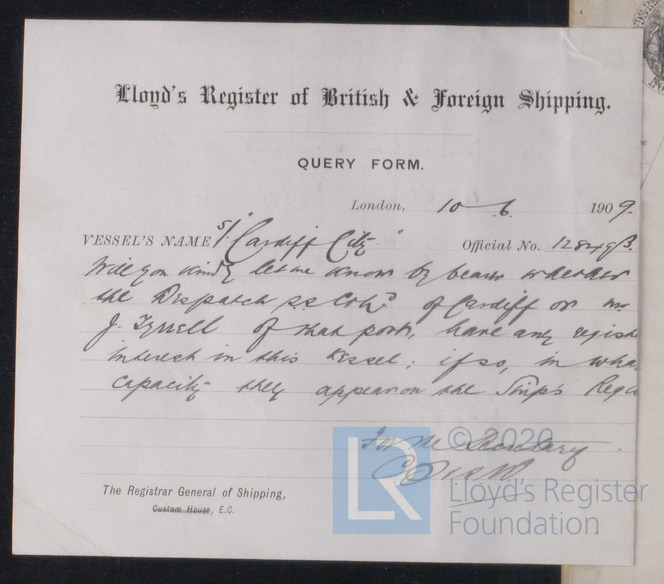 Lloyd's Register of British & Foreign Shipping.
QUERY FORM.
London, 10 6. 1909.
VESSEL'S NAME "Cardiff City" Official No. 128493.
Will you kindly let me know by bearer whether
the Despatch SS Coy of Cardiff or Mr
J. Tyrrell of that port, have any regist
interest in this vessel; if so, in wha
capacity they appear on the Ship's Regis
For the Secretary
© 2020
LR
Lloyd's Register
Foundation
The Registrar General of Shipping,
Custom House, E.C.